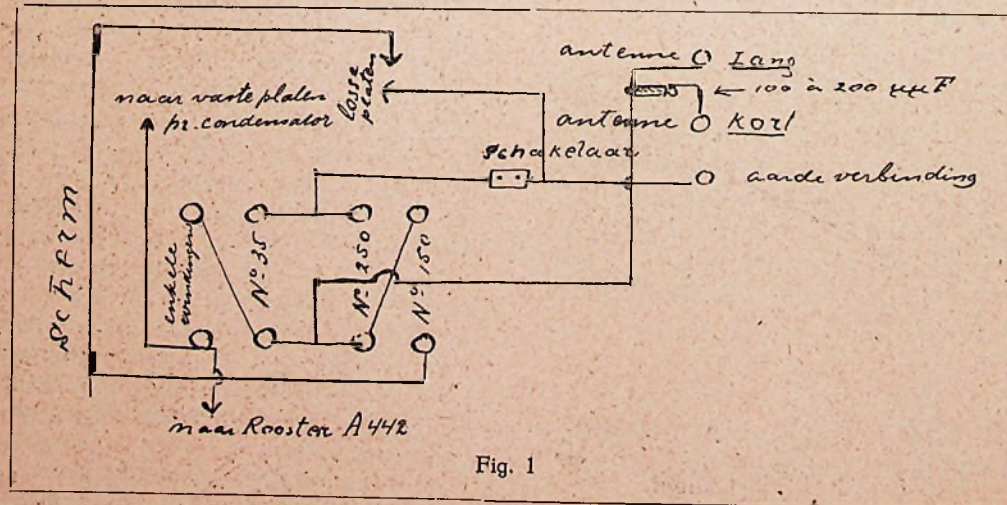 antenne Lang
naar vaste platen
pr. condensator
losse
platen
← 100 à 200 µµF
antenne kort
schakelaar
aarde verbinding
scherm
enkele
windingen
No 35
No 250
No 150
naar Rooster A 442
Fig. 1